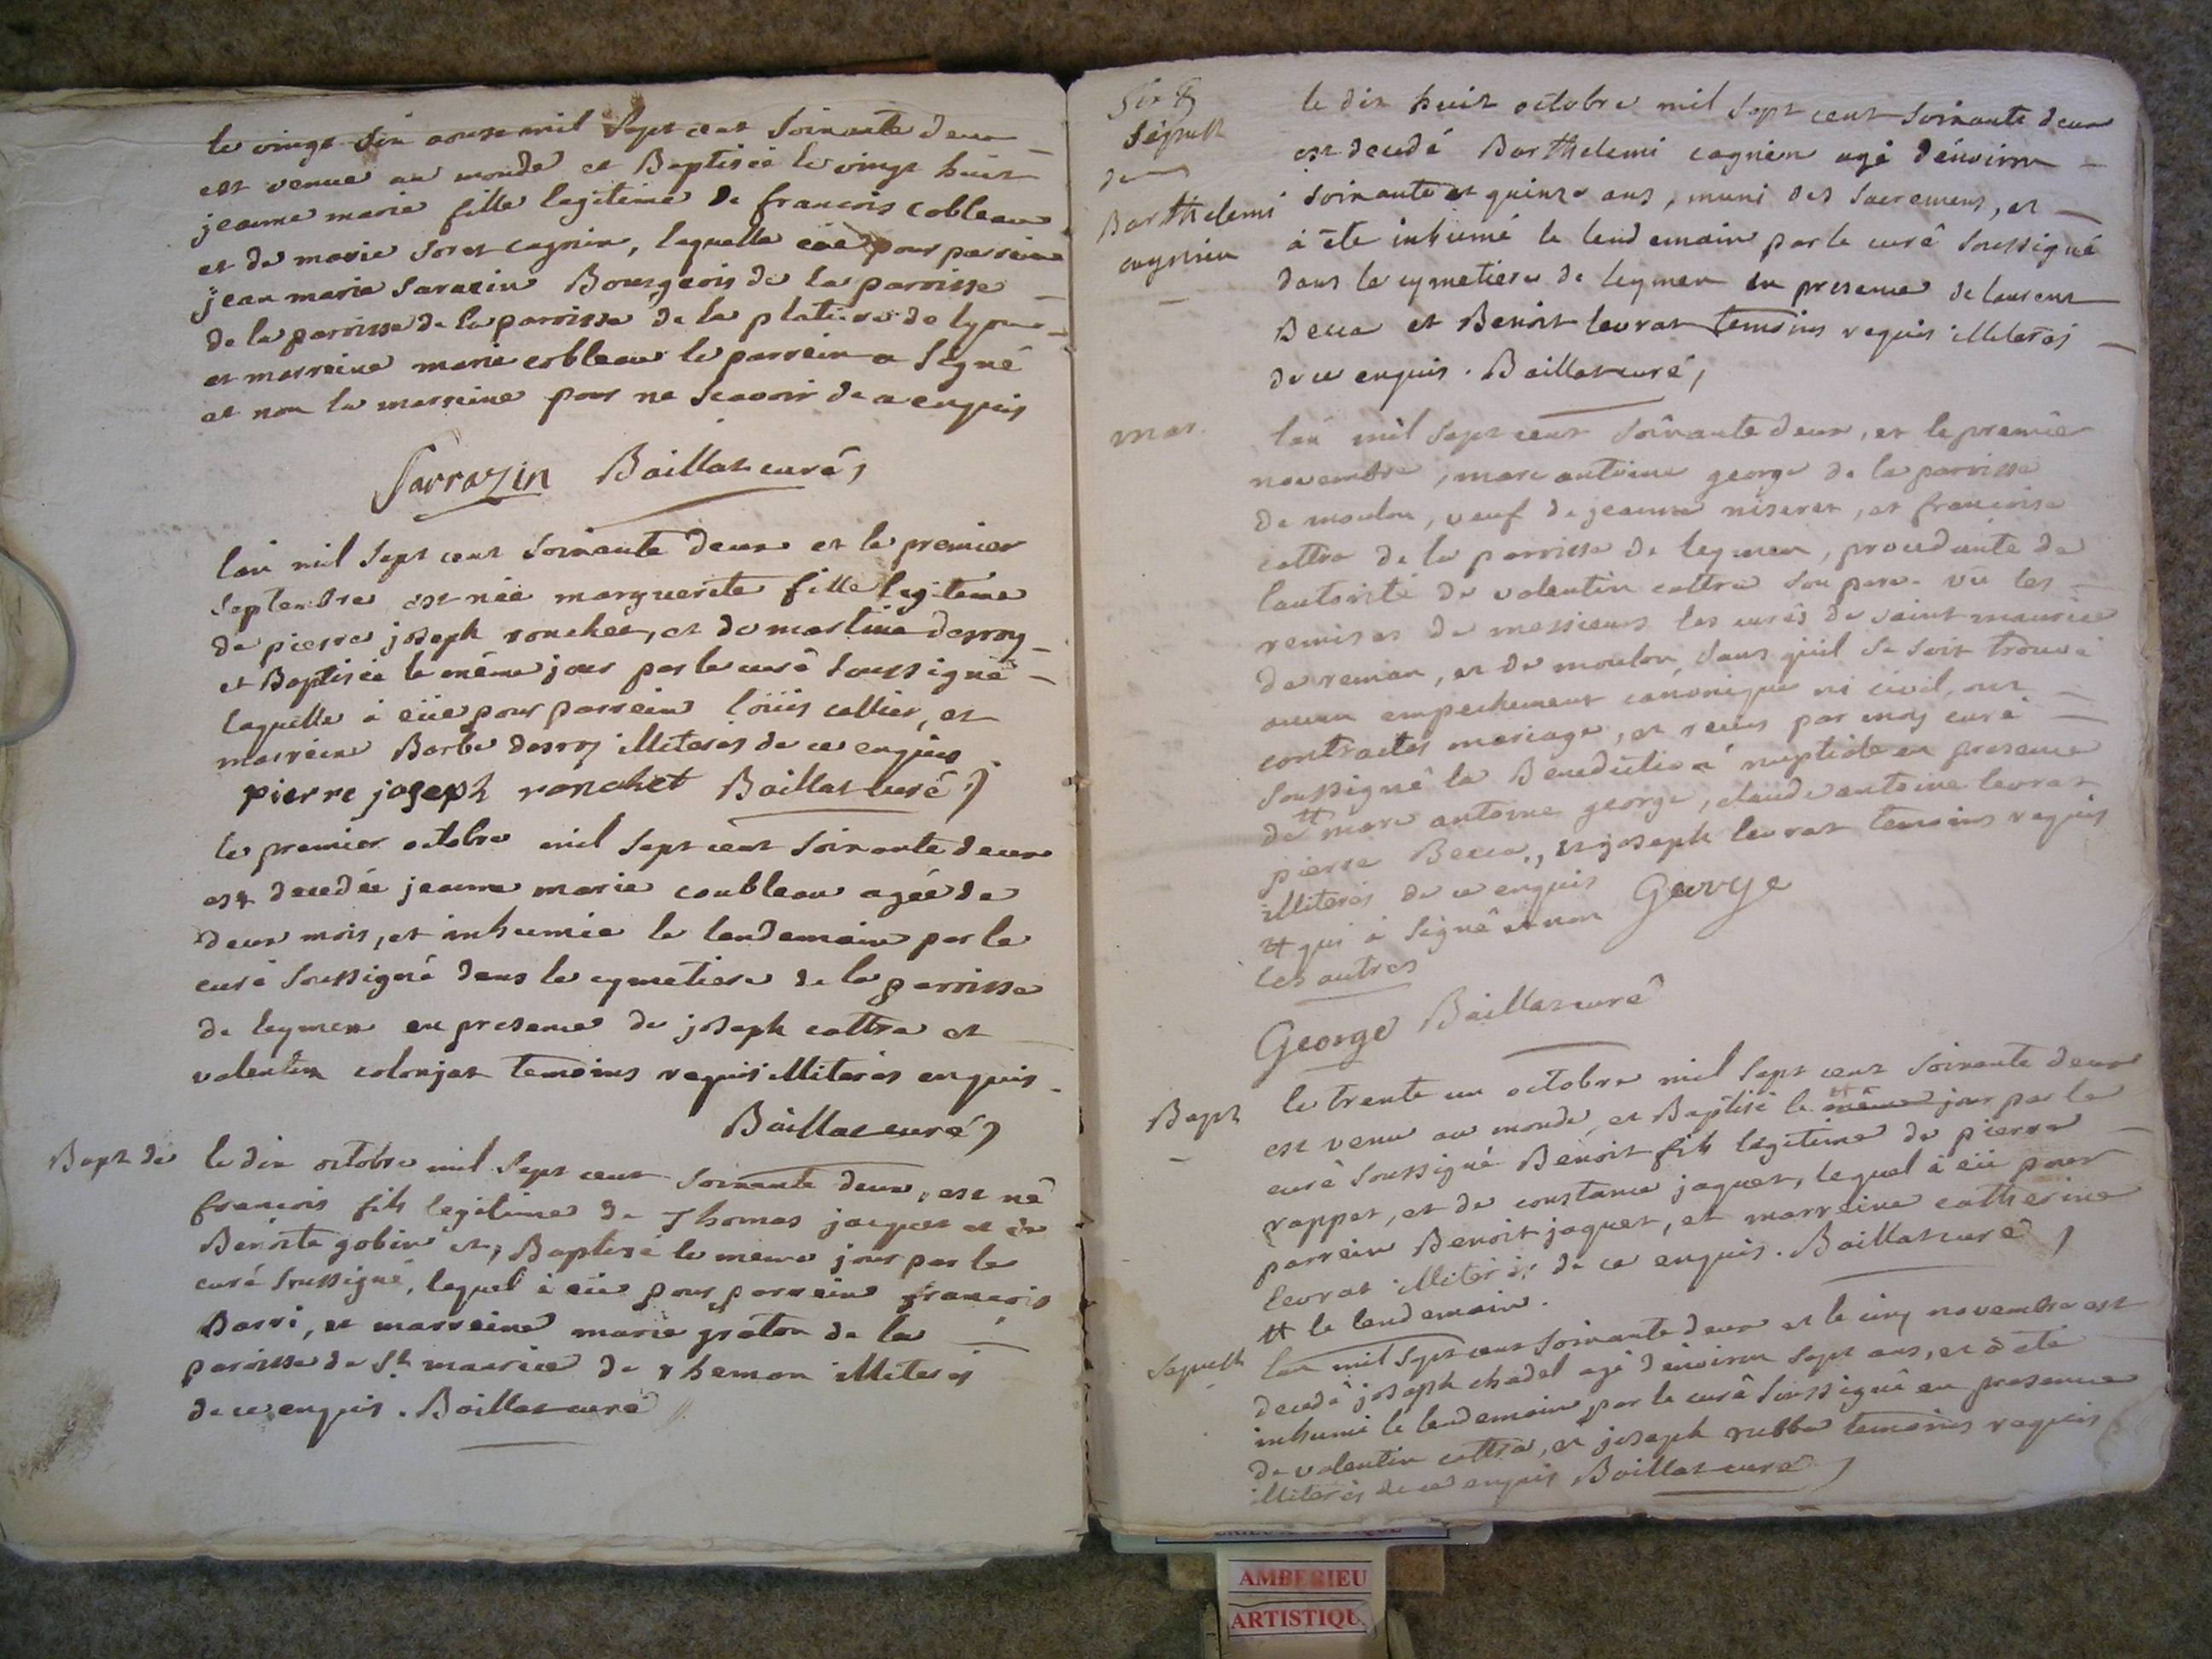 le vingt six aoust mil sept cent soixante deux
est venue au monde et Baptisée le vingt huit
jeanne marie fille legitime de francois cobleau
et de marie   cagnin, laquelle a eüe pour parrein
jean marie saracin Bourgeois de la parroisse
de la parroisse de la parroisse de la platiere de lyon
et marreine marie cobleau le parrein a signé
et non la marreine pour ne scavoir de ce enquis
Sarrazin Baillat curé,
lan mil sept cent soixante deux et le premier
septembre est née marguerite fille legitime
de pierre joseph ronchet, et de marline desroy
et Baptisée le même jour par le curé soussigné
laquelle à eüe pour parrein loüis collier, et
marreine Barbe desroy illiterés de ce enquis
pierre joseph ronchet Baillat curé)
le premier octobre mil sept cent soixante deux
est decedée jeanne marie coubleau agée de
deux mois, et inhumée le lendemain par le
curé soussigné dans le cymetiere de la parroisse
de leymen en presence de joseph cottra et
valentin colonjat temoins requis illiterés enquis
Baillat curé)
Bapt de
le dix octobre mil sept cent soixante deux, est né
francois fils legitime de Thomas jacquet et de
Benoite gobin et, Baptisé le meme jour par le
curé soussigné, lequel à eüe pour parrein francois
Barri, et marreine marie graton de la
paroisse de St. maurice de rheman illiterés
de ce enquis. Baillat curé
Sepult
de
Barthelemi
cagnin
le dix huit octobre mil sept cent soixante deux
est decedé Barthelemi cagnin agé d'environ
soixante et quinze ans, muni des sacremens, et
à été inhumé le lendemain par le curé soussigné
dans le cymetiere de leymen en presence de laurent
Becca et Benoit levrat temoins requis illiterés
de ce enquis. Baillat curé,
mar.
lan mil sept cent soixante deux, et le premier
novembre, marc antoine george de la parroisse
de moulon, veuf de jeanne niseret, et francoise
cottra de la parroisse de leymen, procedante de
lautorité de valentin cottra son pere. vû les
remises de messieurs les curés de saint maurice
de reman, et de moulon, sans qu'il se soit trouvé
aucun empechement canonique ni civil, ont
contractés mariage, et reçus par moy curé
soussigné la Benediction nuptiale en presence
de # marc antoine george, claude antoine levrat
pierre Becca, et joseph levrat temoins requis
illiterés de ce enquis George
# qui à signé et non
les autres
George Baillat curé
Bapt
le trente un octobre mil sept cent soixante deux
est venu au monde, et Baptisé le # même jour par le
curé soussigné Benoit fils legitime de pierre
rappet, et de constance jaquet, lequel à eüe pour
parrein Benoit jaquet, et marreine catherine
levrat illiterés de ce enquis. Baillat curé,
# le lendemain.
Sepult
lan mil sept cent soixante deux et le cinq novembre est
decedé joseph chadel agé d'environ sept ans, et à été
inhumé le lendemain par le curé soussigné en presence
de valentin cottra, et joseph rubba temoins requis
illiterés de ce enquis Baillat curé)
AMBERIEU
ARTISTIQU